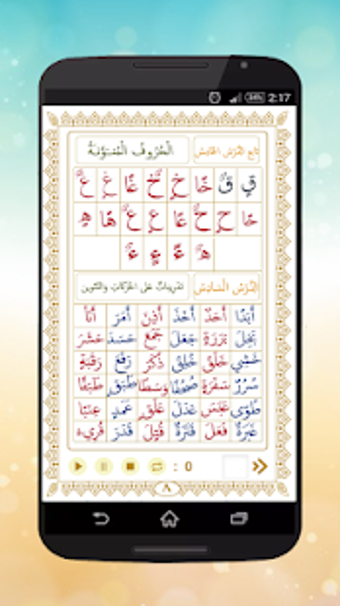 2:17
تابع الدَّرْسُ الخَامِسُ
الْحُرُوفُ الْمُنَوَّنَةُ
قٍ قٌ خًا خٍ خٌ غًا غٍ غٌ
حًا حٍ حٌ عًا عٍ عٌ هًا هٍ
هٌ ءً ءٍ ءٌ
الدَّرْسُ السَّادِسُ
تَدْرِيبَاتٌ عَلَى الحَرَكَاتِ وَالتَّنْوِينِ
أَبَدًا أَحَدٌ أَخَذَ أَذِنَ أَمَرَ أَنَا
بَخِلَ بَرَرَةٍ جَعَلَ جَمَعَ حَسَدَ حَشَرَ
خَشِيَ خَلَقَ خُلِقَ ذَكَرَ رَفَعَ رَقَبَةٍ
سُرُرٌ سَفَرَةٍ صُحُفًا وَسَطًا طَبَقٍ طَبَقًا
طُوًى عَبَسَ عَدَلَ عَلَقٍ عَمَدٍ عِنَبًا
غَبَرَةٌ فَعَلَ قَتَرَةٌ قُتِلَ قَدَرَ قُرِئَ
: 0
٨